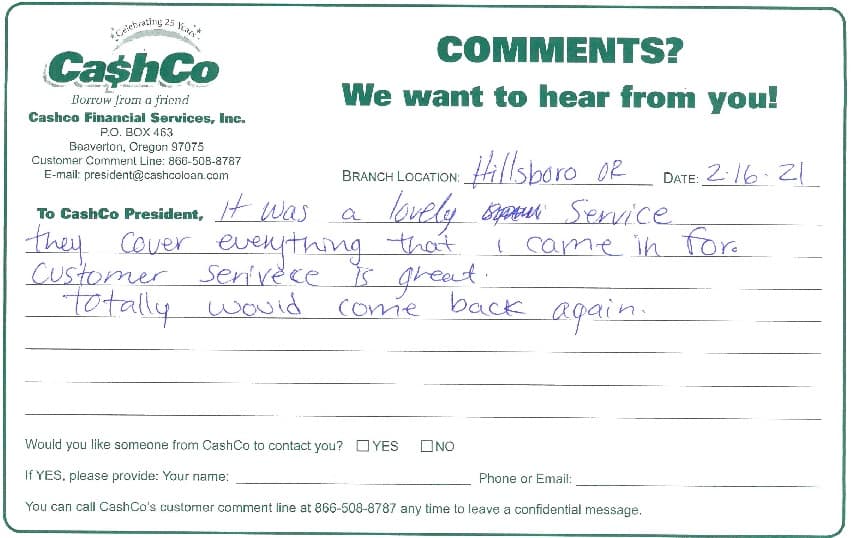 Celebrating 25 Years
Ca$hCo
Borrow from a friend
Cashco Financial Services, Inc.
P.O. BOX 463
Beaverton, Oregon 97075
Customer Comment Line: 866-508-8787
E-mail: president@cashcoloan.com
COMMENTS?
We want to hear from you!
BRANCH LOCATION: Hillsboro OR DATE: 2-16-21
To CashCo President, It was a lovely Service
they cover everything that i came in for.
Customer serivece is great.
totally would come back again.
Would you like someone from CashCo to contact you? ☐ YES ☐ NO
If YES, please provide: Your name: Phone or Email:
You can call CashCo's customer comment line at 866-508-8787 any time to leave a confidential message.